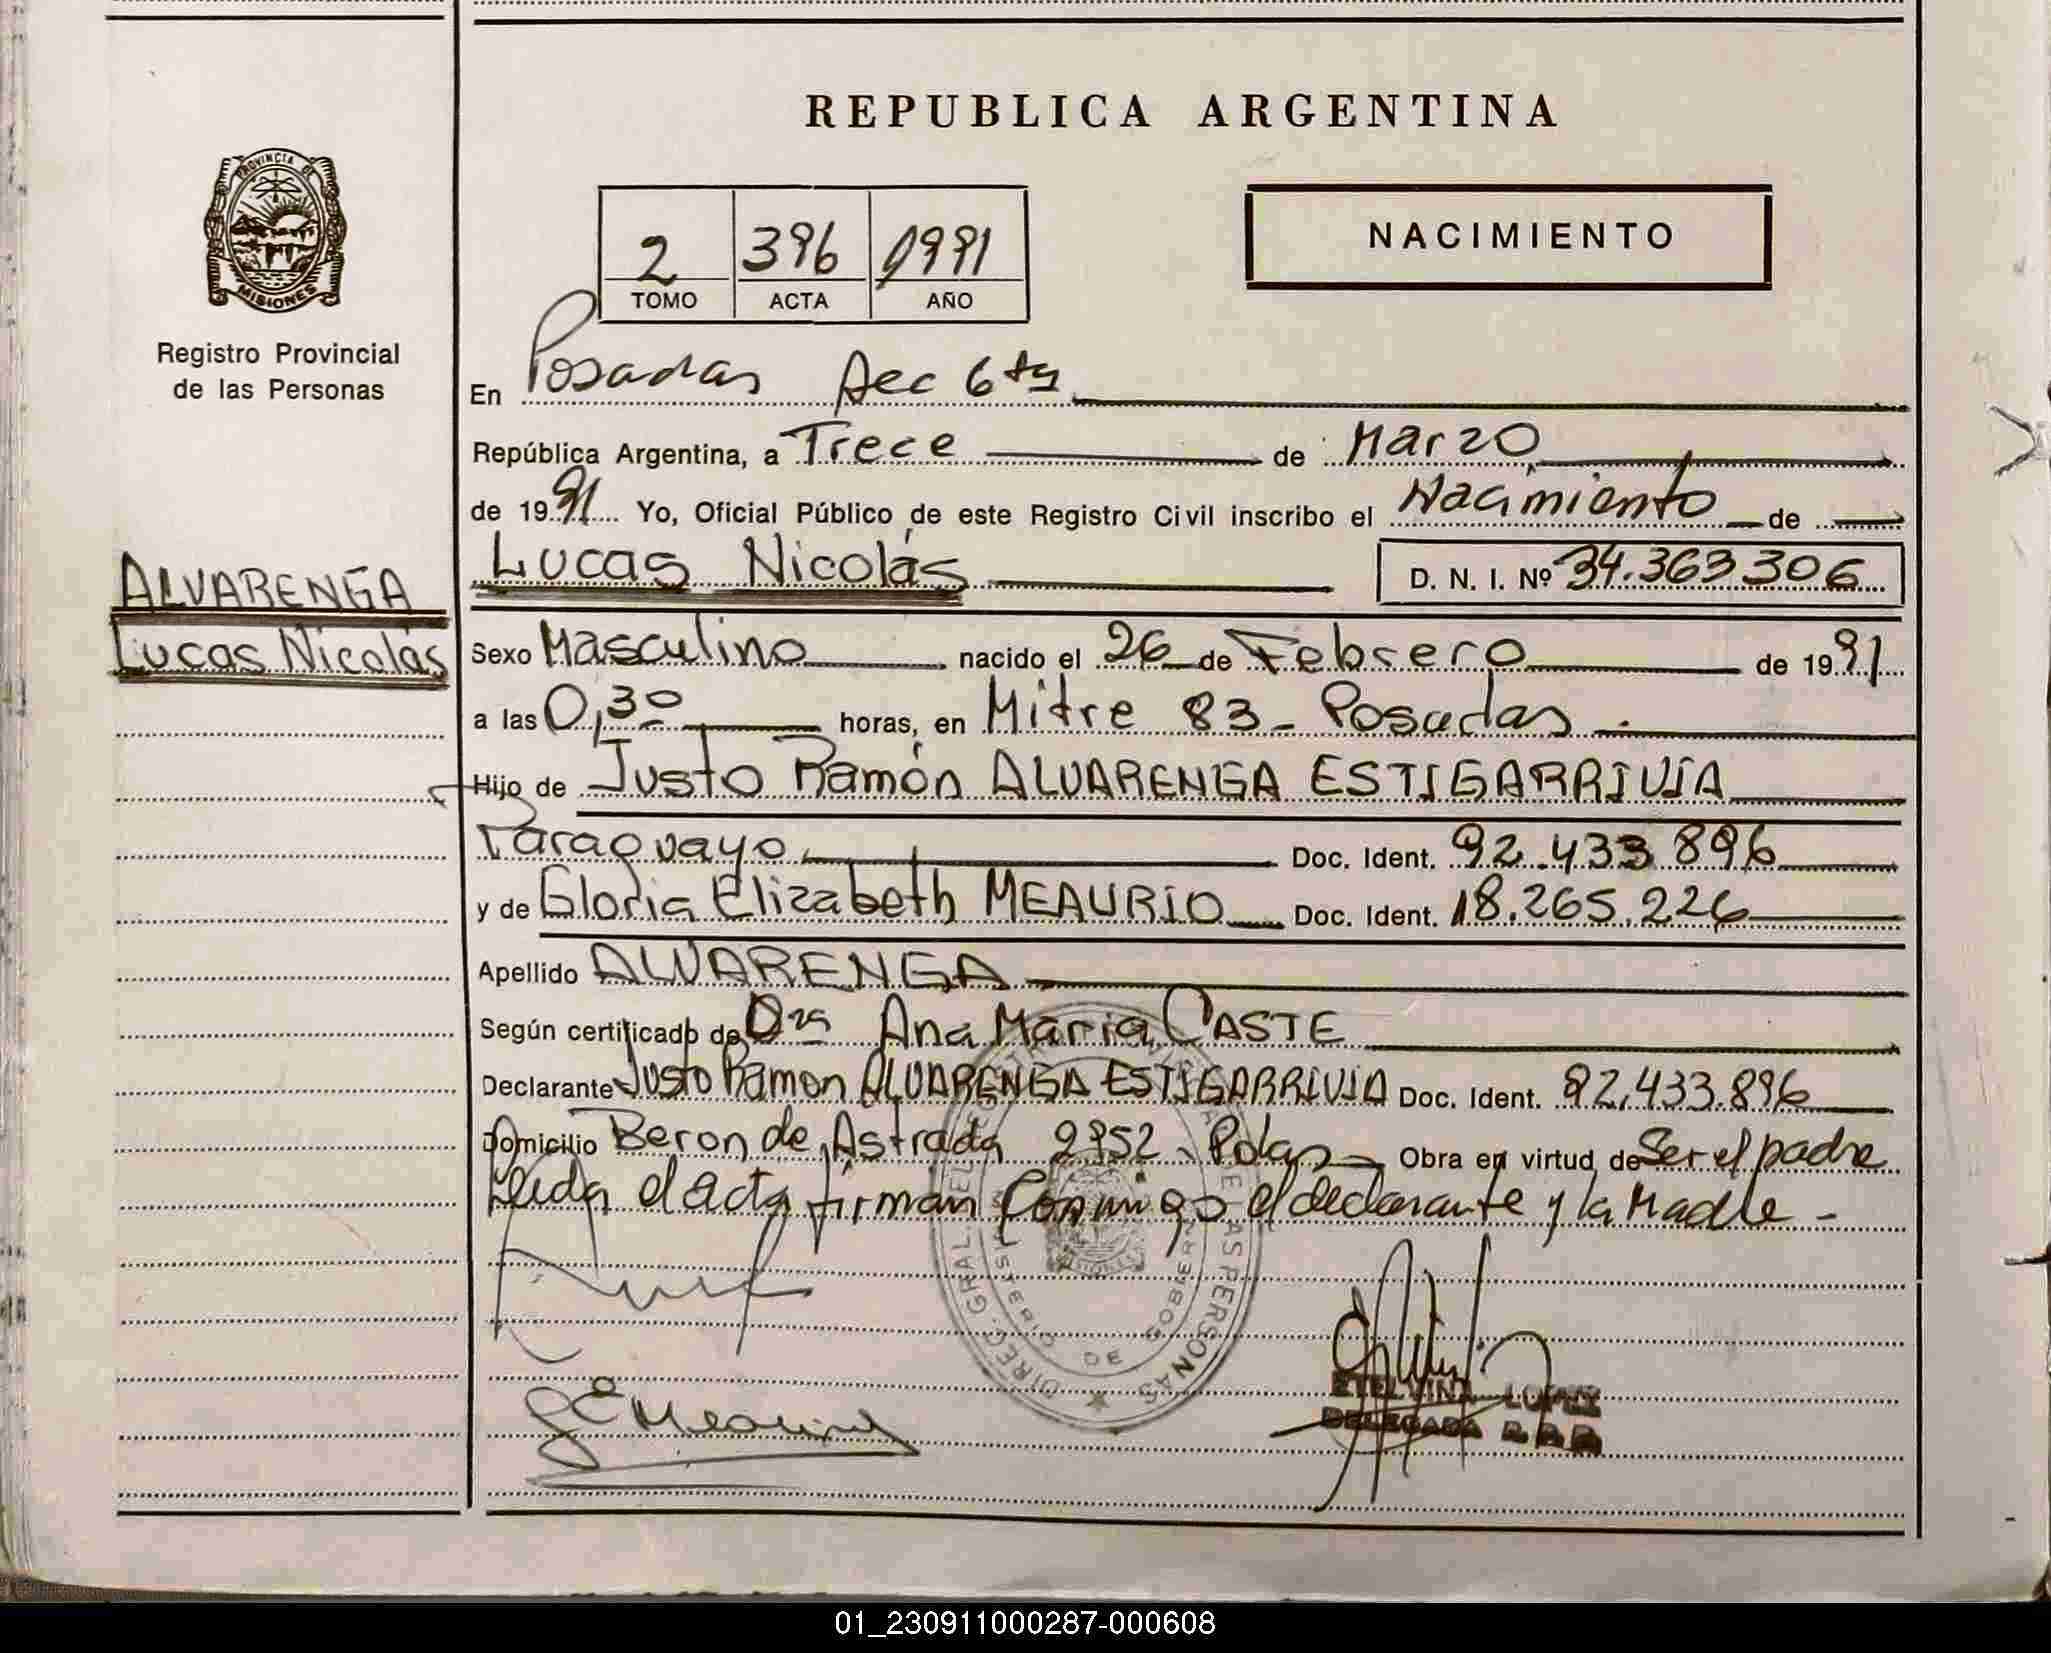 REPUBLICA ARGENTINA
PROVINCIA DE
MISIONES
Registro Provincial
de las Personas
2 396 1991
TOMO ACTA AÑO
NACIMIENTO
En Posadas Sec 6ta
República Argentina, a Trece de Marzo
de 1991 Yo, Oficial Público de este Registro Civil inscribo el Nacimiento de
Lucas Nicolás D. N. I. Nº 34.363306
ALVARENGA
Lucas Nicolás
Sexo Masculino nacido el 26 de Febrero de 1991
a las 0,30 horas, en Mitre 83 - Posadas.
Hijo de Justo Ramón ALVARENGA ESTIGARRIVIA
Paraguayo Doc. Ident. 92.433896
y de Gloria Elizabeth MEAURIO Doc. Ident. 18.265.226
Apellido ALVARENGA
Según certificado de Dra Ana Maria CASTE
Declarante Justo Ramon ALVARENGA ESTIGARRIVIA Doc. Ident. 92.433.896
Domicilio Beron de Astrada 2952 - Pdas Obra en virtud de Ser el padre
Leida el acta firman conmigo el declarante y la Madre -
DIREC. GRAL. DEL REGISTRO PROVINCIAL DE LAS PERSONAS
MINISTERIO DE GOBIERNO
MISIONES
G E Meaurio
ETELVINA LOPEZ
DELEGADA R P P
01_230911000287-000608